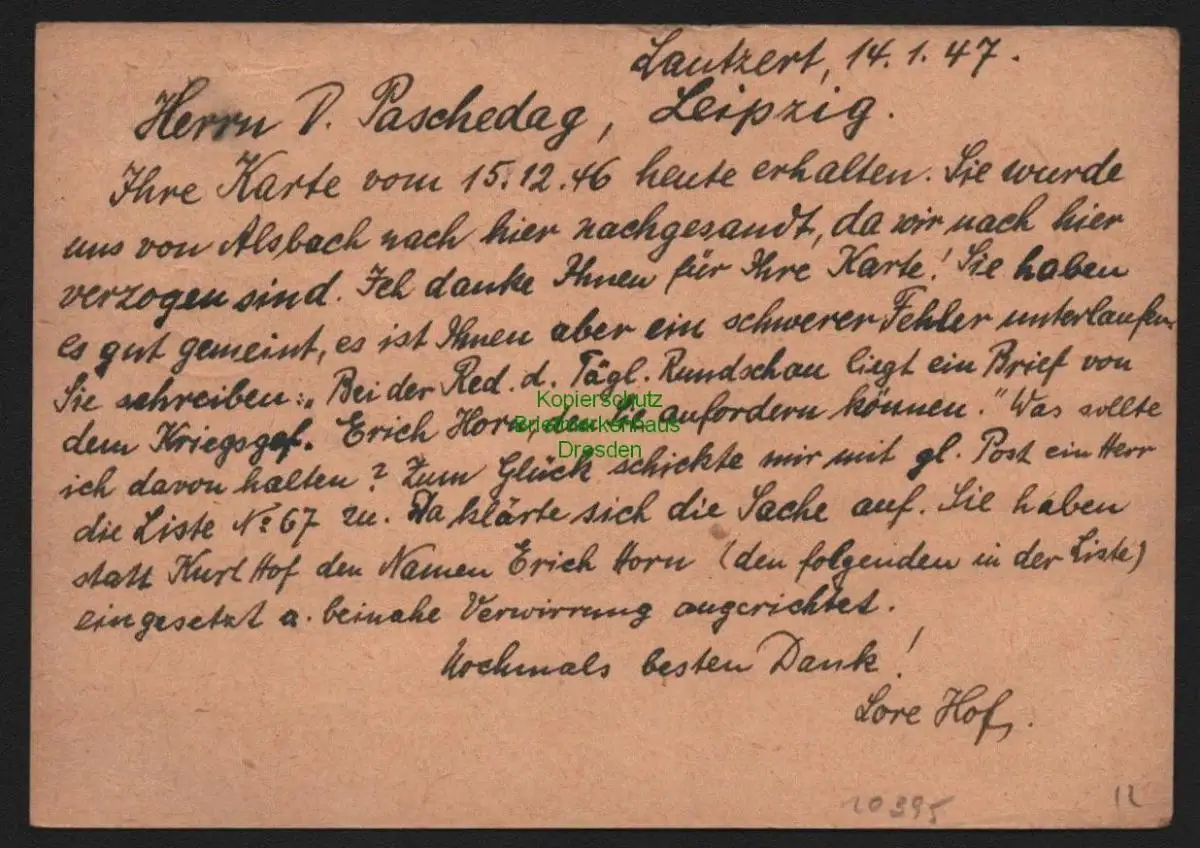 Lautzert, 14.1.47.
Herrn P. Paschedag, Leipzig.
Ihre Karte vom 15.12.46 heute erhalten. Sie wurde
uns von Alsbach nach hier nachgesandt, da wir nach hier
verzogen sind. Ich danke Ihnen für Ihre Karte! Sie haben
es gut gemeint, es ist Ihnen aber ein schwerer Fehler unterlaufen.
Sie schreiben: „Bei der Red. d. Tägl. Rundschau liegt ein Brief von
dem Kriegsgef. Erich Horn, den Sie anfordern können." Was sollte
ich davon halten? Zum Glück schickte mir mit gl. Post ein Herr
die Liste No 67 zu. Da klärte sich die Sache auf. Sie haben
statt Kurl Hof den Namen Erich Horn (den folgenden in der Liste)
eingesetzt u. beinahe Verwirrung angerichtet.
Nochmals besten Dank!
Lore Hof.
Kopierschutz
Briefmarkenhaus
Dresden
10395
12